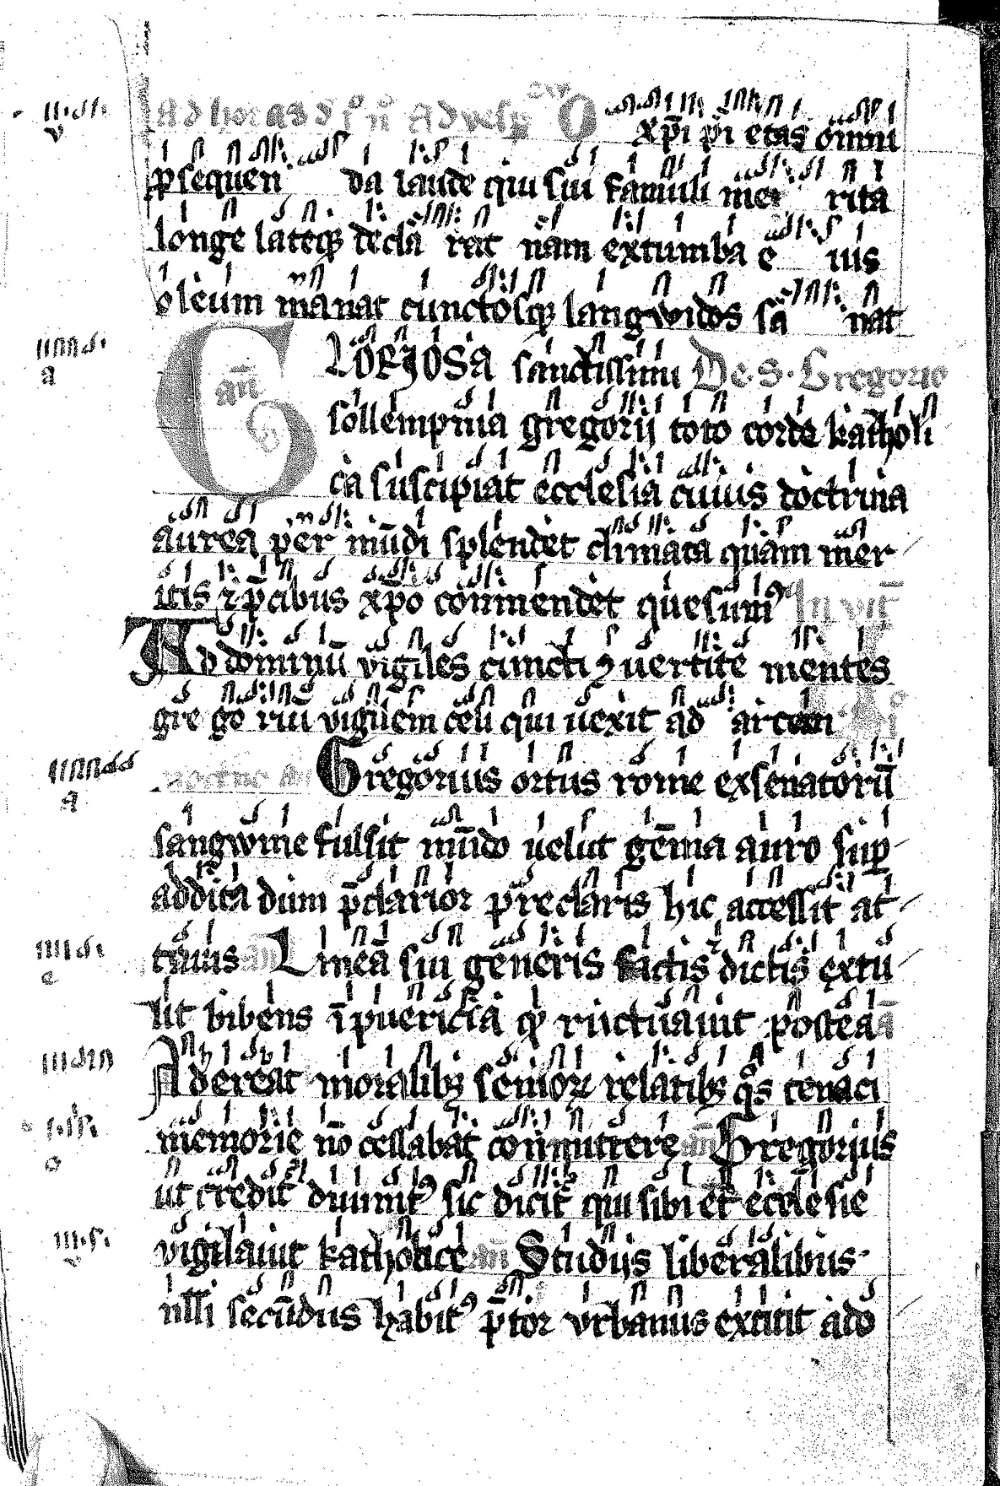 Ad horas d Ad vesp O
xp̄i pī etas omni
p̄sequen da laude qui sui famuli me rita
longe lateq; declā rat nam extumba e ius
oleum manat cunctosq; langwidos sa nat
GLORIOSA sanctissimi De. S. Gregorio
an̄ sollempnia gregorij toto corde katholi
ca suscipiat ecclesia cuius doctrina
aurea per mūdi splendet climata quam mer
itis ⁊ p̄cibus xp̄o conmendet quesumꝰ Invit̄
Ad dominū vigiles cuncti ꝯuertite mentes
gre go rium vigilem celi qui uexit ad arcem
Gregorius ortus rome exsenatorū
sangwine fulsit mūdo uelut gēma auro sup̄
addita dum p̄clarior preclaris hic accessit at
tauis an̄ Lineā sui generis factis dictis extu
lit bibens ī puericia q̄ rūctuauit postea an̄
Adereat morālibꝫ seniorū relatibꝫ q̊s tenaci
memorie nō cessabat conmittere an̄ Gregorius
ut creditᷣ diuinitꝰ sic dicitᷣ qui sibi et ecclesie
vigilauit katholice an̄ Studijs liberalibus
nulli secūdus habitꝰ p̄tor vrbanus extitit ado